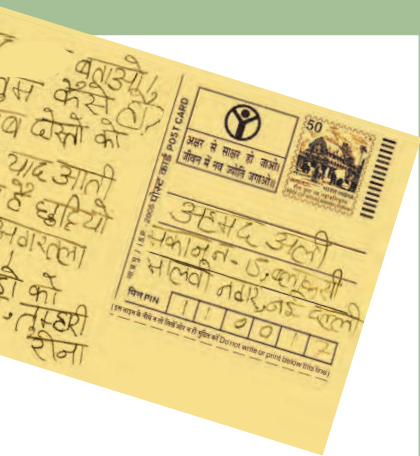 बताओ,
तुम कैसे हो?
दोस्तो को
याद आती
है छुट्टियो
अगरतला
को
तुम्हारी
रीना
पोस्ट कार्ड POST CARD
अक्षर से साक्षर हो जाओ।
जीवन में नव ज्योति जगाओ॥
50
अहमद अली
मकान न.- 15, ब्लाक सी
मालवी नगर, नई दिल्ली
पिन PIN
1 1 0 0 1 7
Do not write or print below this line)